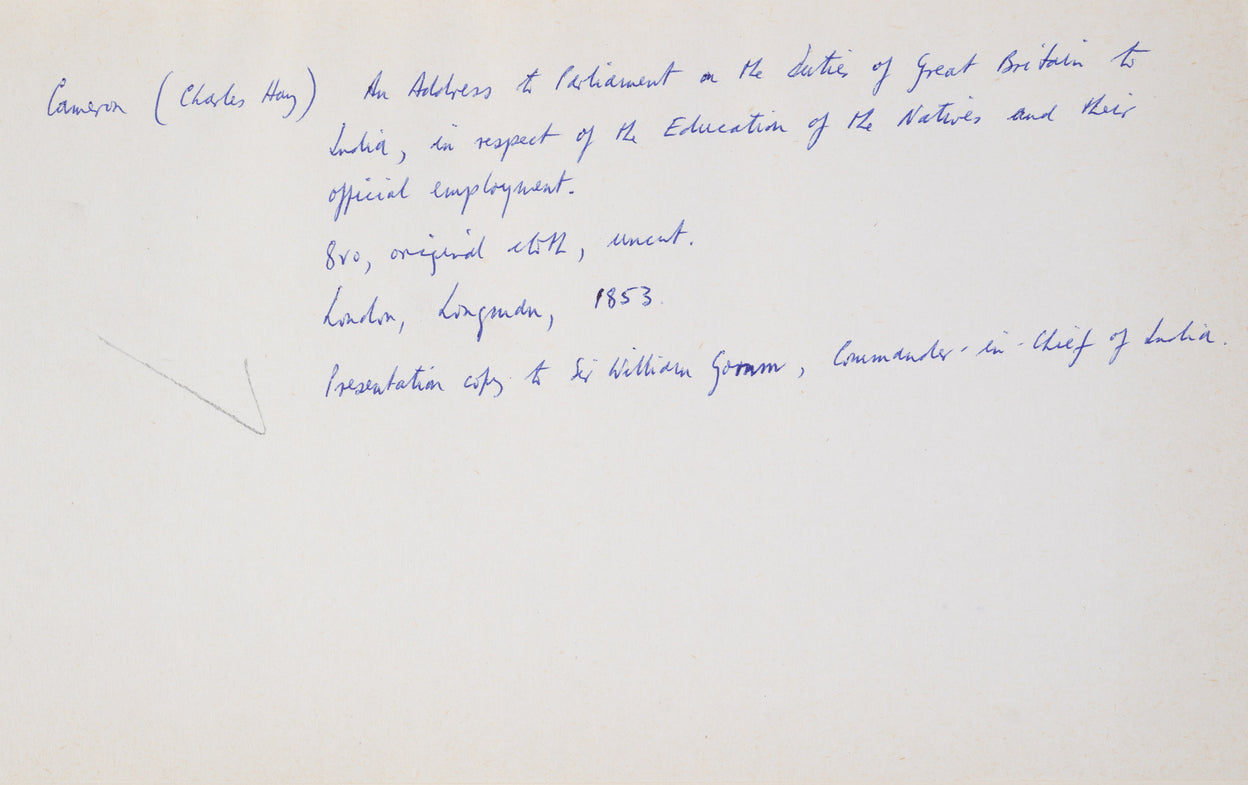 Cameron (Charles Hay) An Address to Parliament on the Duties of Great Britain to
India, in respect of the Education of the Natives and their
official employment.
8vo, original cloth, uncut.
London, Longman, 1853.
Presentation copy to Sir William Gomm, Commander-in-Chief of India.